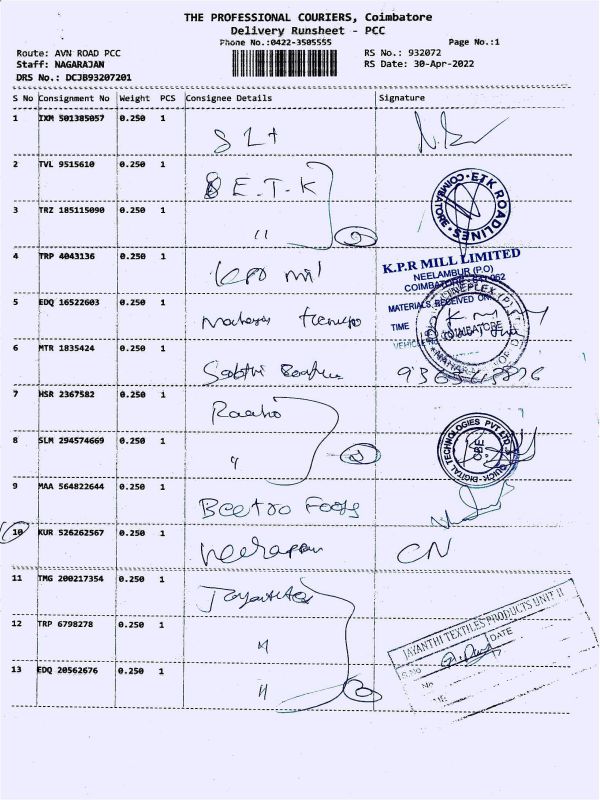 THE PROFESSIONAL COURIERS, Coimbatore
Delivery Runsheet - PCC
Phone No.:0422-3505555
Page No.:1
Route: AVN ROAD PCC
RS No.: 932072
Staff: NAGARAJAN
RS Date: 30-Apr-2022
DRS No.: DCJB93207201
S No Consignment No Weight PCS Consignee Details Signature
1 IXM 501385057 0.250 1
2 TVL 9515610 0.250 1 E.T.K
COIMBATORE ETK ROADLINES
3 TRZ 185115090 0.250 1 "
4 TRP 4043136 0.250 1
K.P.R MILL LIMITED
NEELAMBUR (P.O)
COIMBATORE - 641 062
MATERIALS RECEIVED ON
5 EDQ 16522603 0.250 1
TIME
COIMBATORE
VEHICLE
6 MTR 1835424 0.250 1
7 HSR 2367582 0.250 1
8 SLM 294574669 0.250 1 "
QUICK DIGITAL TECHNOLOGIES PVT LTD
CBE
9 MAA 564822644 0.250 1 Beetro Foods
10 KUR 526262567 0.250 1 CN
11 TMG 200217354 0.250 1
JAYANTHI TEXTILES PRODUCTS UNIT II
DATE
12 TRP 6798278 0.250 1 "
13 EDQ 20562676 0.250 1 "